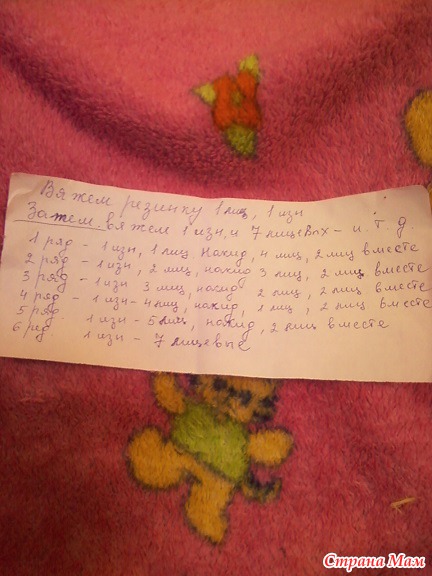 Вяжем резинку 1 лиц, 1 изн
Затем вяжем 1 изн, и 7 лицевых - и. т. д.
1 ряд - 1 изн, 1 лиц накид, 4 лиц, 2 лиц вместе
2 ряд - 1 изн, 2 лиц, накид 3 лиц, 2 лиц вместе
3 ряд - 1 изн 3 лиц, накид 2 лиц, 2 лиц вместе
4 ряд - 1 изн - 4 лиц, накид, 1 лиц, 2 лиц вместе
5 ряд. 1 изн - 5 лиц, накид, 2 лиц вместе
6 ряд. 1 изн - 7 лицевые
Страна Мам